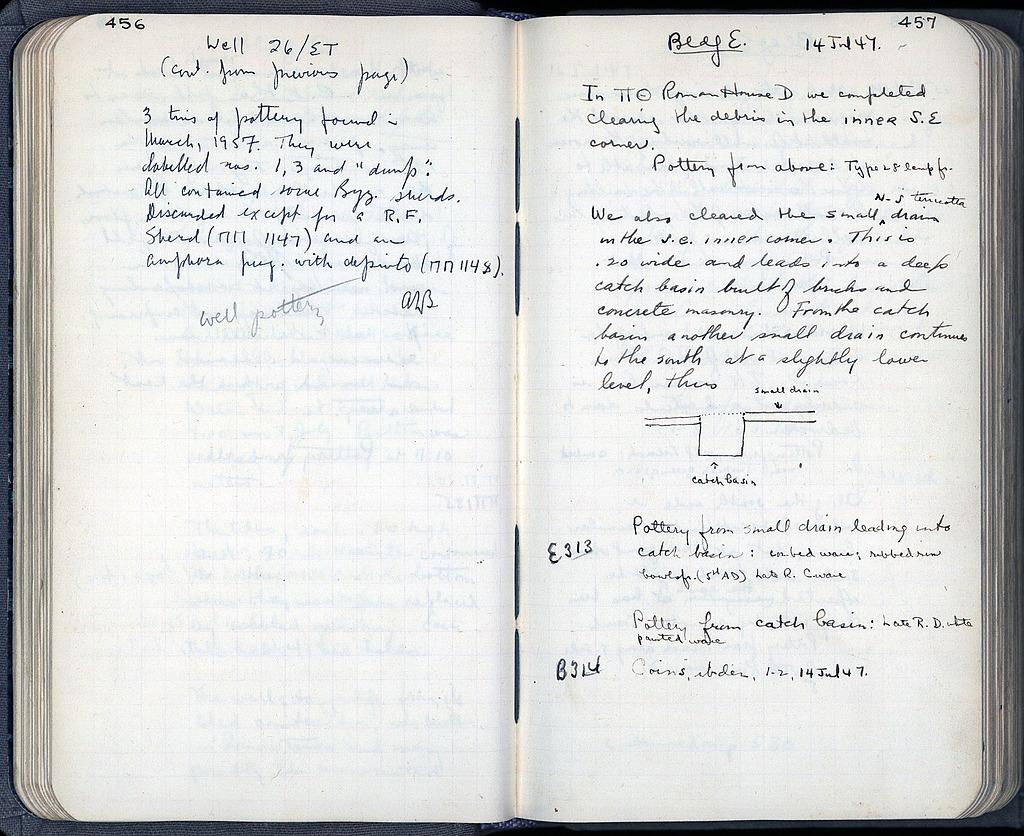 456
Well 26/ΣΤ
(cont. from previous page)
3 tins of pottery found in
March, 1957. They were
labelled nos. 1, 3 and "dump".
All contained some Byz. sherds.
Discarded except for a R.F.
Sherd (ΠΠ 1147) and an
amphora frag. with dipinto (ΠΠ 1148).
well pottery
457
Bldg E. 14 Jul 47.
In ΠΘ Roman House D we completed
clearing the debris in the inner S.E
corner.
Pottery from above: Type 28 lamp fr.
N-S terracotta
We also cleared the small, drain
in the s.e. inner corner. This is
.20 wide and leads into a deep
catch basin built of bricks and
concrete masonry. From the catch
basin another small drain continues
to the south at a slightly lower
level, thus
small drain
catch basin
Pottery from small drain leading into
E313
catch basin: combed ware; ribbed rim
bowl fr. (5th AD) Late R. C. ware
Pottery from catch basin: Late R. D. white
painted ware
B314 Coins, 1-2, 14 Jul 47.